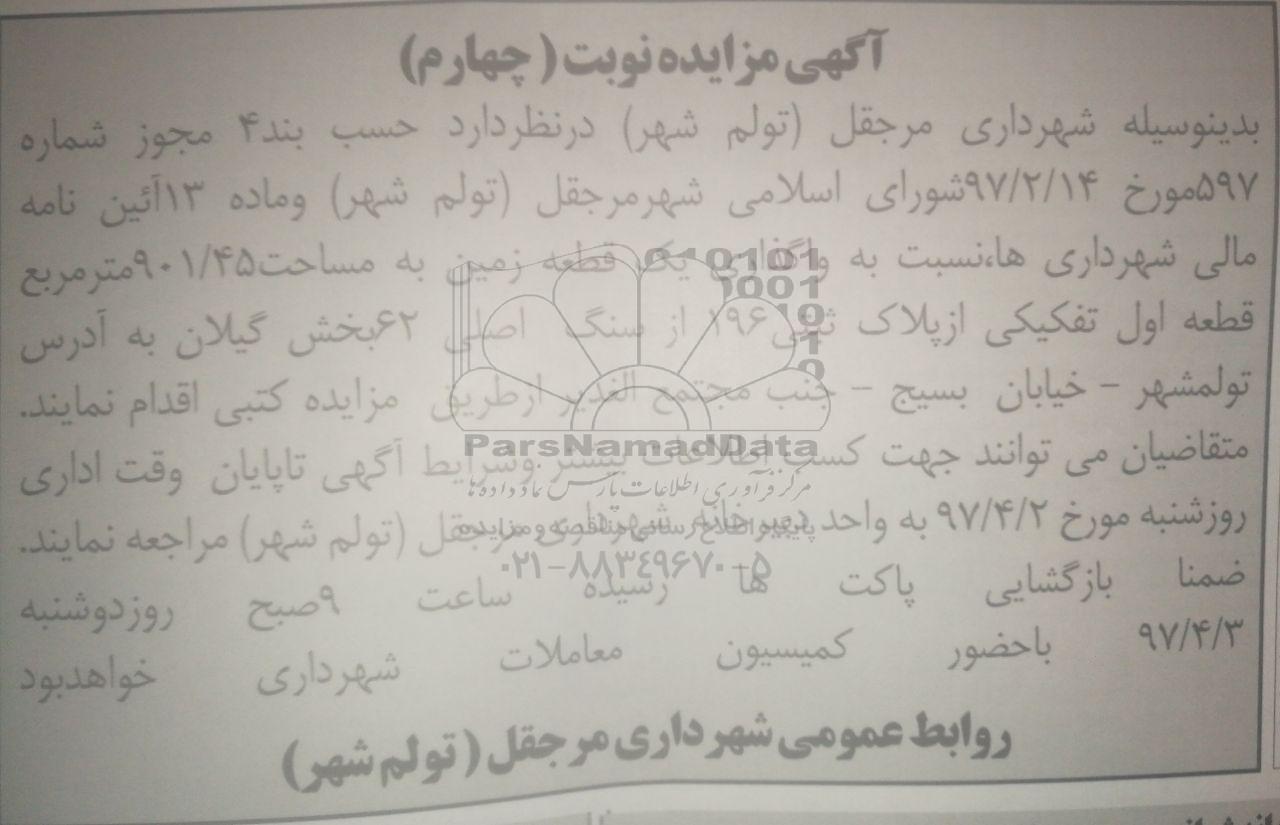 آگهی مزایده نوبت ( چهارم)
بدینوسیله شهرداری مرجقل (تولم شهر) درنظردارد حسب بند۴ مجوز شماره
۵۹۷مورخ ۹۷/۲/۱۴شورای اسلامی شهرمرجقل (تولم شهر) وماده ۱۳آئین نامه
مالی شهرداری ها،نسبت به واگذاری یک قطعه زمین به مساحت۹۰۱/۴۵مترمربع
قطعه اول تفکیکی ازپلاک ثبتی۱۹۶ از سنگ اصلی ۶۲بخش گیلان به آدرس
تولمشهر – خیابان بسیج – جنب مجتمع الغدیر ازطریق مزایده کتبی اقدام نمایند.
متقاضیان می توانند جهت کسب اطلاعات بیشتر وشرایط آگهی تاپایان وقت اداری
روزشنبه مورخ ۹۷/۴/۲ به واحد دبیرخانه شهرداری مرجقل (تولم شهر) مراجعه نمایند.
ضمنا بازگشایی پاکت ها رسیده ساعت ۹صبح روزدوشنبه
۹۷/۴/۳ باحضور کمیسیون معاملات شهرداری خواهدبود
روابط عمومی شهرداری مرجقل ( تولم شهر)
ParsNamadData
مرکز فرآوری اطلاعات پارس نماد داده ها
پایگاه اطلاع رسانی مناقصه و مزایده
۰۲۱-۸۸۳۴۹۶۷۰-۵